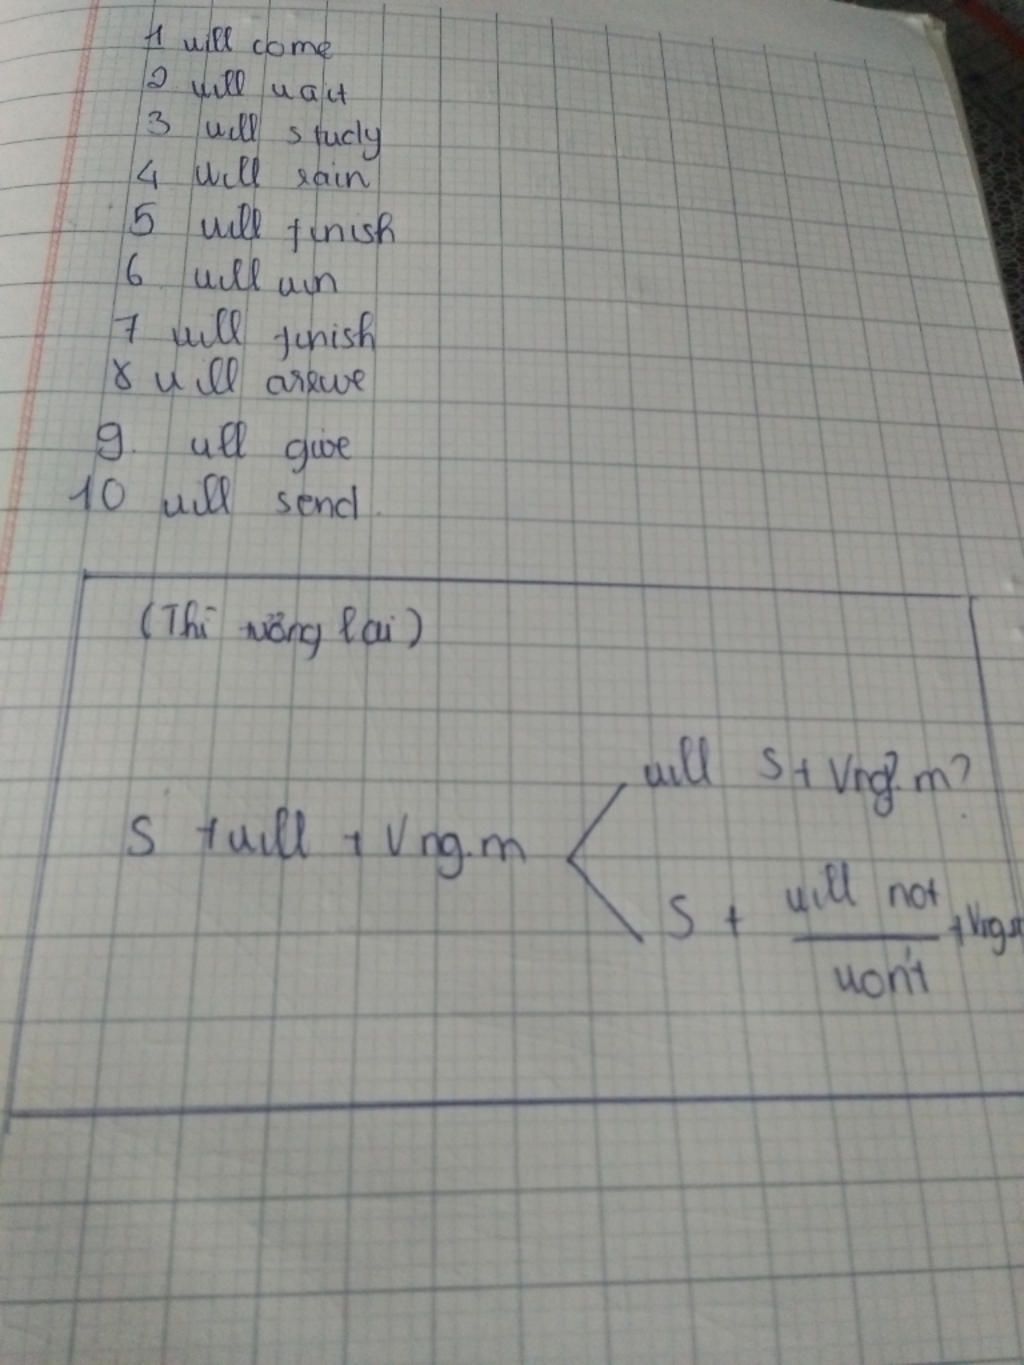 1 will come
2 will wait
3 will study
4 will rain
5 will finish
6 will win
7 will finish
8 will arrive
9. will give
10 will send.
(Thì tương lai)
will S + Vng.m?
S + will + Vng.m
S + will not + Vng.m
won't